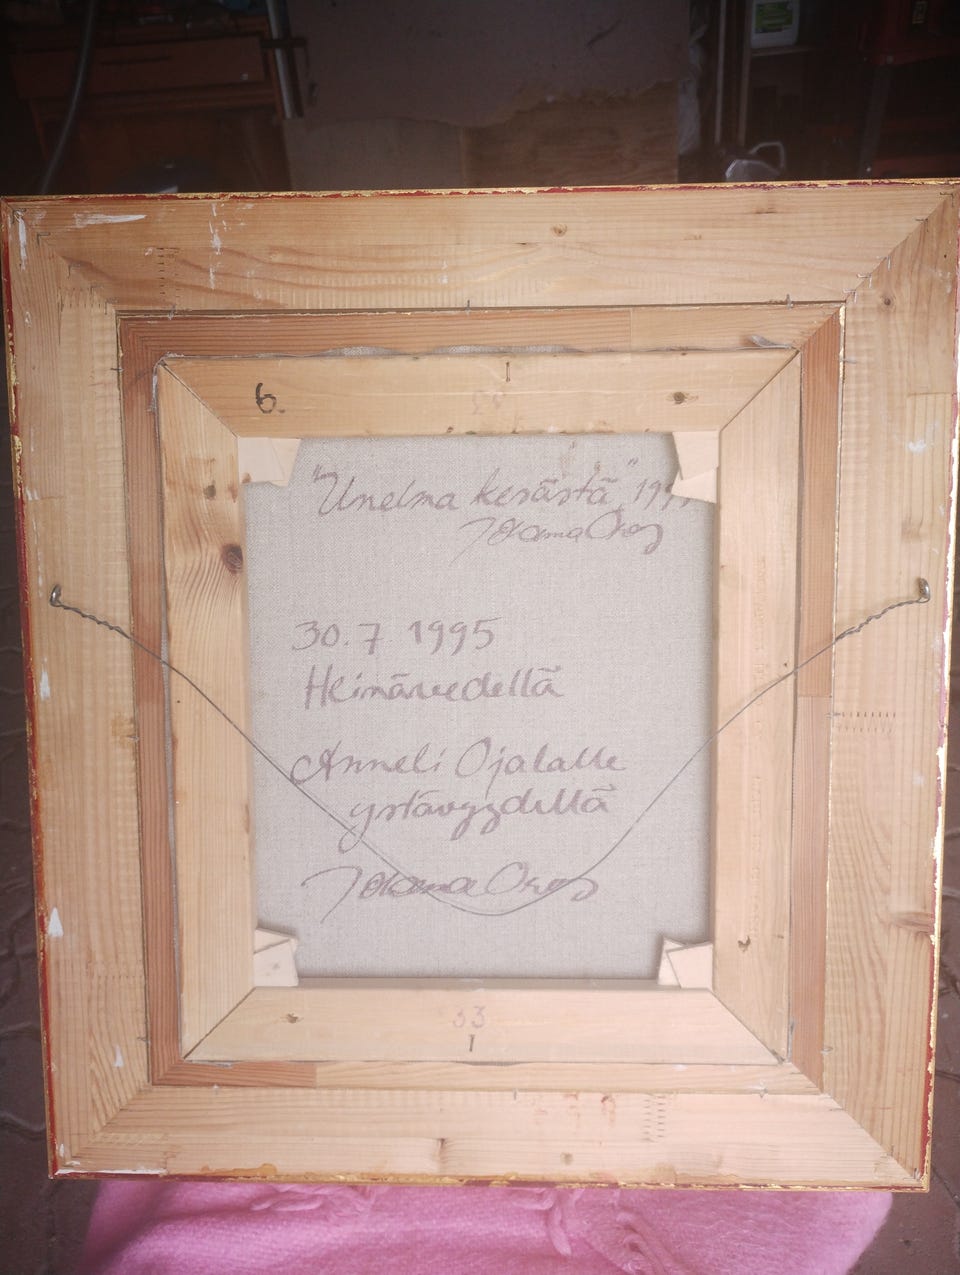 6.
33
"Unelma kesästä" 199
Jolana Oros
30.7 1995
Heinävedellä
Anneli Ojalalle
ystävyydellä
Jolana Oros
33